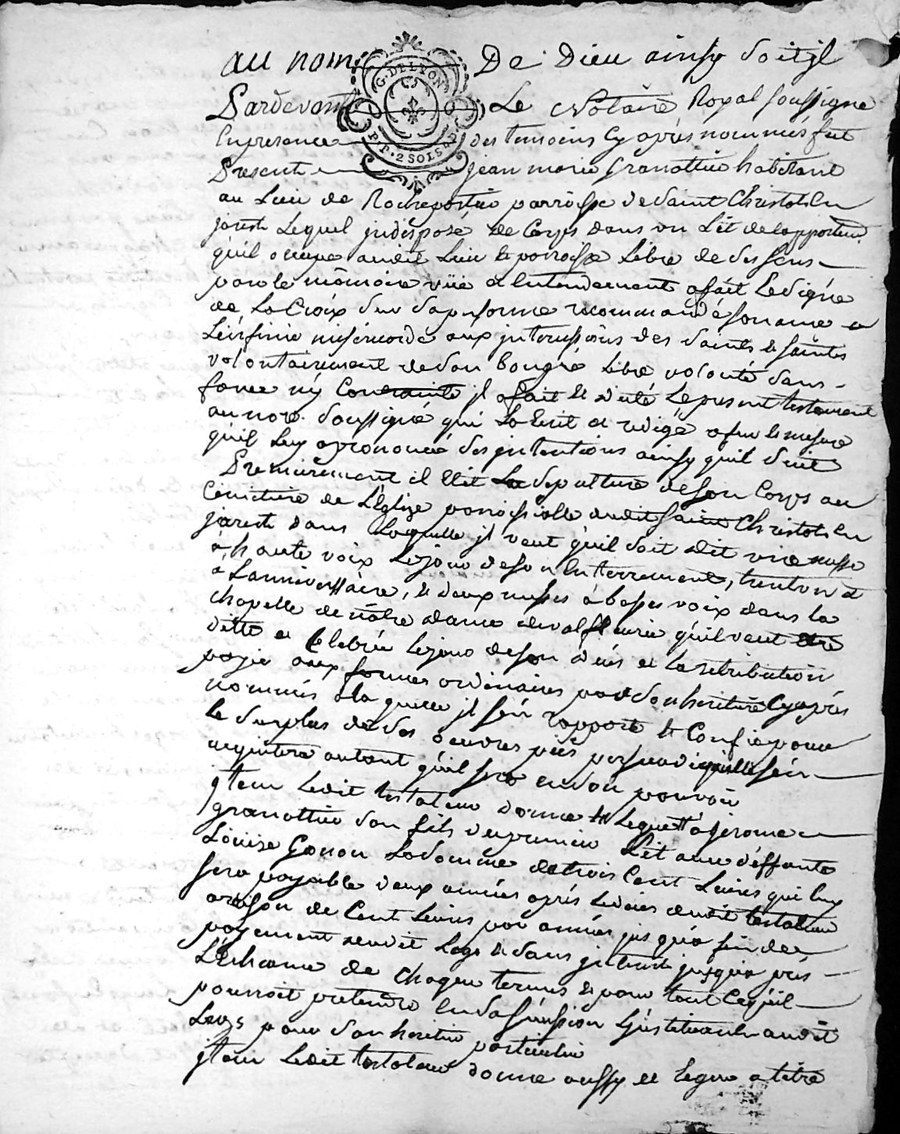 au nom De Dieu ainsy soitil
G. DE LYON
P.P. 2 SOLS 4 D.
Pardevant Le Notaire Royal soussigne
En presence des temoins cy apres nommés fut
Present jean marie granottier habitant
au Lieu de Rochepertuis parroisse de Saint Christot en
jarest Lequel jndisposé de Corps dans un Lit
quil occupe audit Lieu & parroisse Libre de ses sens
parole mémoire vüe & Entendement a fait Le signe
de La Croix sur sa personne recommandé son ame a
L'infinie misericorde aux intercessions des saints & saintes
volontairement de son bon gré libre volonté sans
force ny Contrainte jl a fait & dicté Le present testament
au notre soussigne qui La Ecrit et redigé a fur & mesure
quil luy a prononcé ses intentions ainsy quil suit
Premierement il Elit La sepulture de son Corps au
Cimetiere de L'Eglise parroissialle dudit Saint Christot en
jarest dans Laquelle jl veut quil soit dit une messe
à haute voix Le jour de son Enterrement, trenten &
à L'anniverssaire, & deux messes à basses voix dans La
chapelle de nôtre dame de valfleurie quil veut etre
ditte et Celebrée Le jour de son décés et La retribution
payée aux formes ordinaires par son heritiere Cy apres
nommée à laquelle jl s'en rapporte & Confie pour
Le surplus de ses oeuvres pies persuadé quelle s'en
acquittera autant quil sera en son pouvoir
jtem Ledit testateur donne & Legue à jerome
granottier son fils du premier Lit avec deffunte
Louise Gonon La somme de trois Cent Livres qui luy
sera payable deux années après Le deces dudit testateur
a raison de Cent Livres par année jusqua fin de
payement sans jnterest jusqu'a près
L'Echeance de chaque termes & pour tout Ce quil
pourroit pretendre En sa succession L'jnstituant audit
Legs pour son heritier particulier
jtem Ledit testateur donne aussy et legue a titre